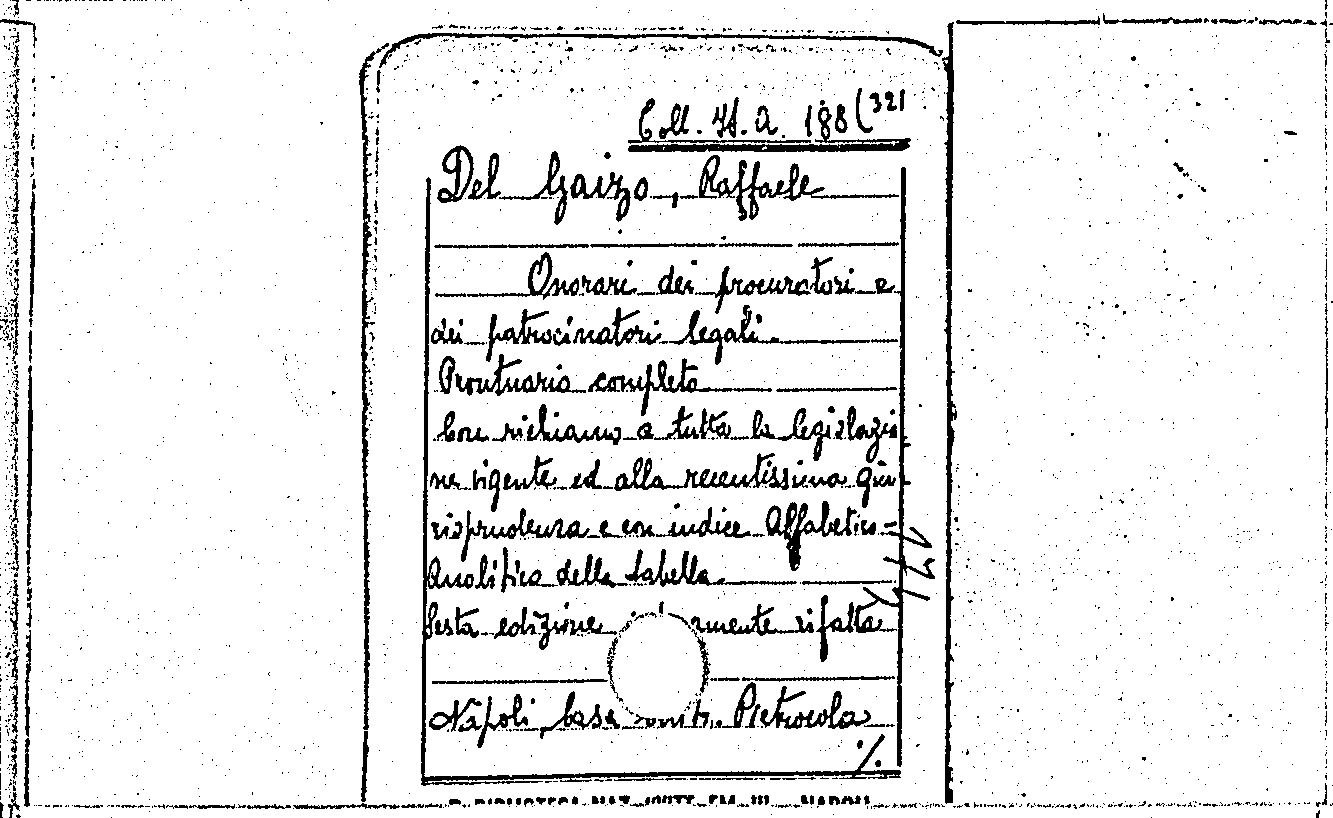 Coll. It. A. 188 (321
Del Gaizo, Raffaele
Onorari dei procuratori e
dei patrocinatori legali.
Prontuario completo
Con richiamo a tutta la legislazio
ne vigente ed alla recentissima giu-
risprudenza e con indice Alfabetico-
Analitico della tabella.
Sesta edizione rifatta
Napoli, Casa Pietrocola
%.